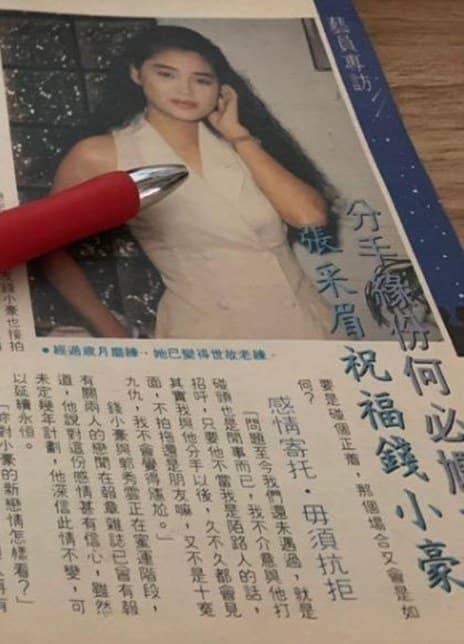 藝員專訪
分手緣份何必
張采眉祝福錢小豪
●經過歲月磨練,她已變得世故老練。
要是碰個正着,那個場合又會是如
何?
感情寄托・毋須抗拒
「問題至今我們還未遇過,就是
碰頭也是閒事而已,我不介意與他打
招呼,只要他不當我是陌路人的話,
其實我與他分手以後,久不久都會見
面,不拍拖還是朋友嘛,又不是十冤
九仇,我不會覺得尷尬。」
錢小豪與郭秀雲正在蜜運階段,
有關兩人的戀聞在報章雜誌已曾有報
道,他說對這份感情甚有信心,雖然
未定幾年計劃,他深信此情不變,可
以延續永恒。
「你對小豪的新戀情怎樣看?」
錢小豪也接拍